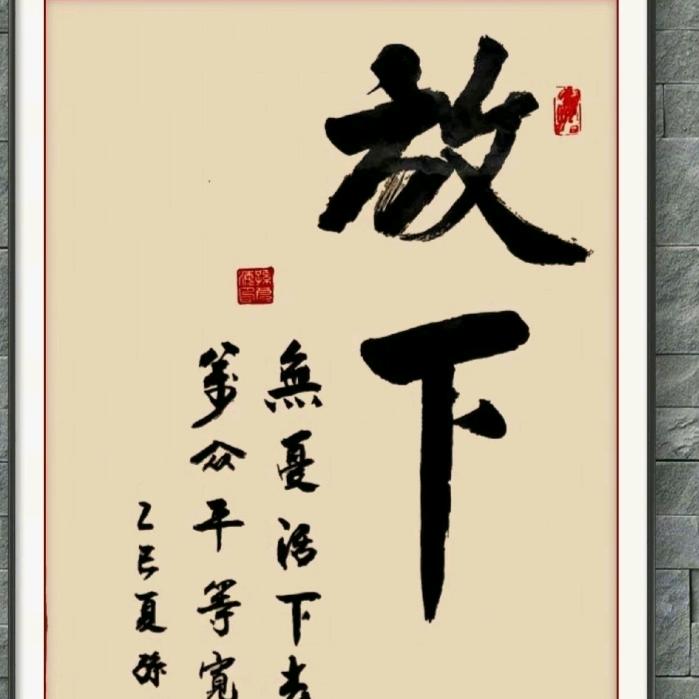 放下
無憂活下去
众平等寬
乙巳夏孫